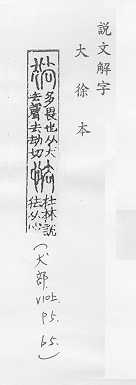 說文解字
大徐本
㹤 多畏也从犬
去聲去劫切
怯 杜林說
㹤从心
(犬部.
V10上.
P5.
b5.)